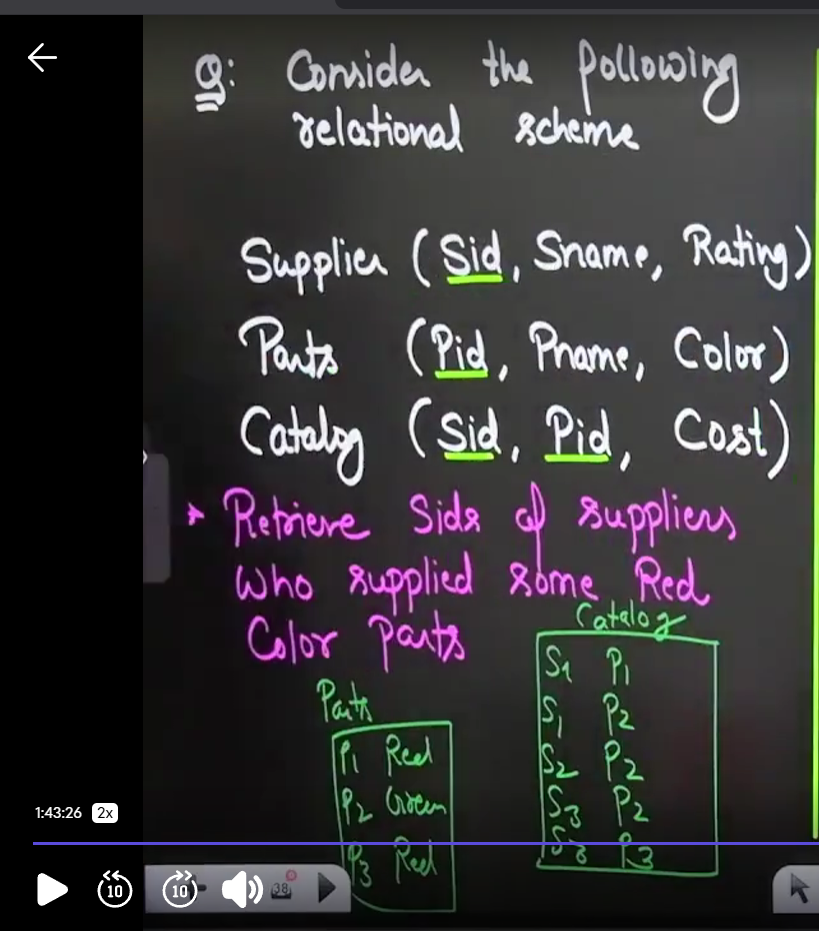 Q: Consider the following
relational scheme
Supplier (Sid, Sname, Rating)
Parts (Pid, Pname, Color)
Catalog (Sid, Pid, Cost)
Retrieve Sids of suppliers
Who supplied some Red
Color parts
Catalog
S1 P1
S1 P2
S2 P2
S3 P2
S3 P3
Parts
P1 Red
P2 Green
P3 Red
1:43:26 2x
10 10 38